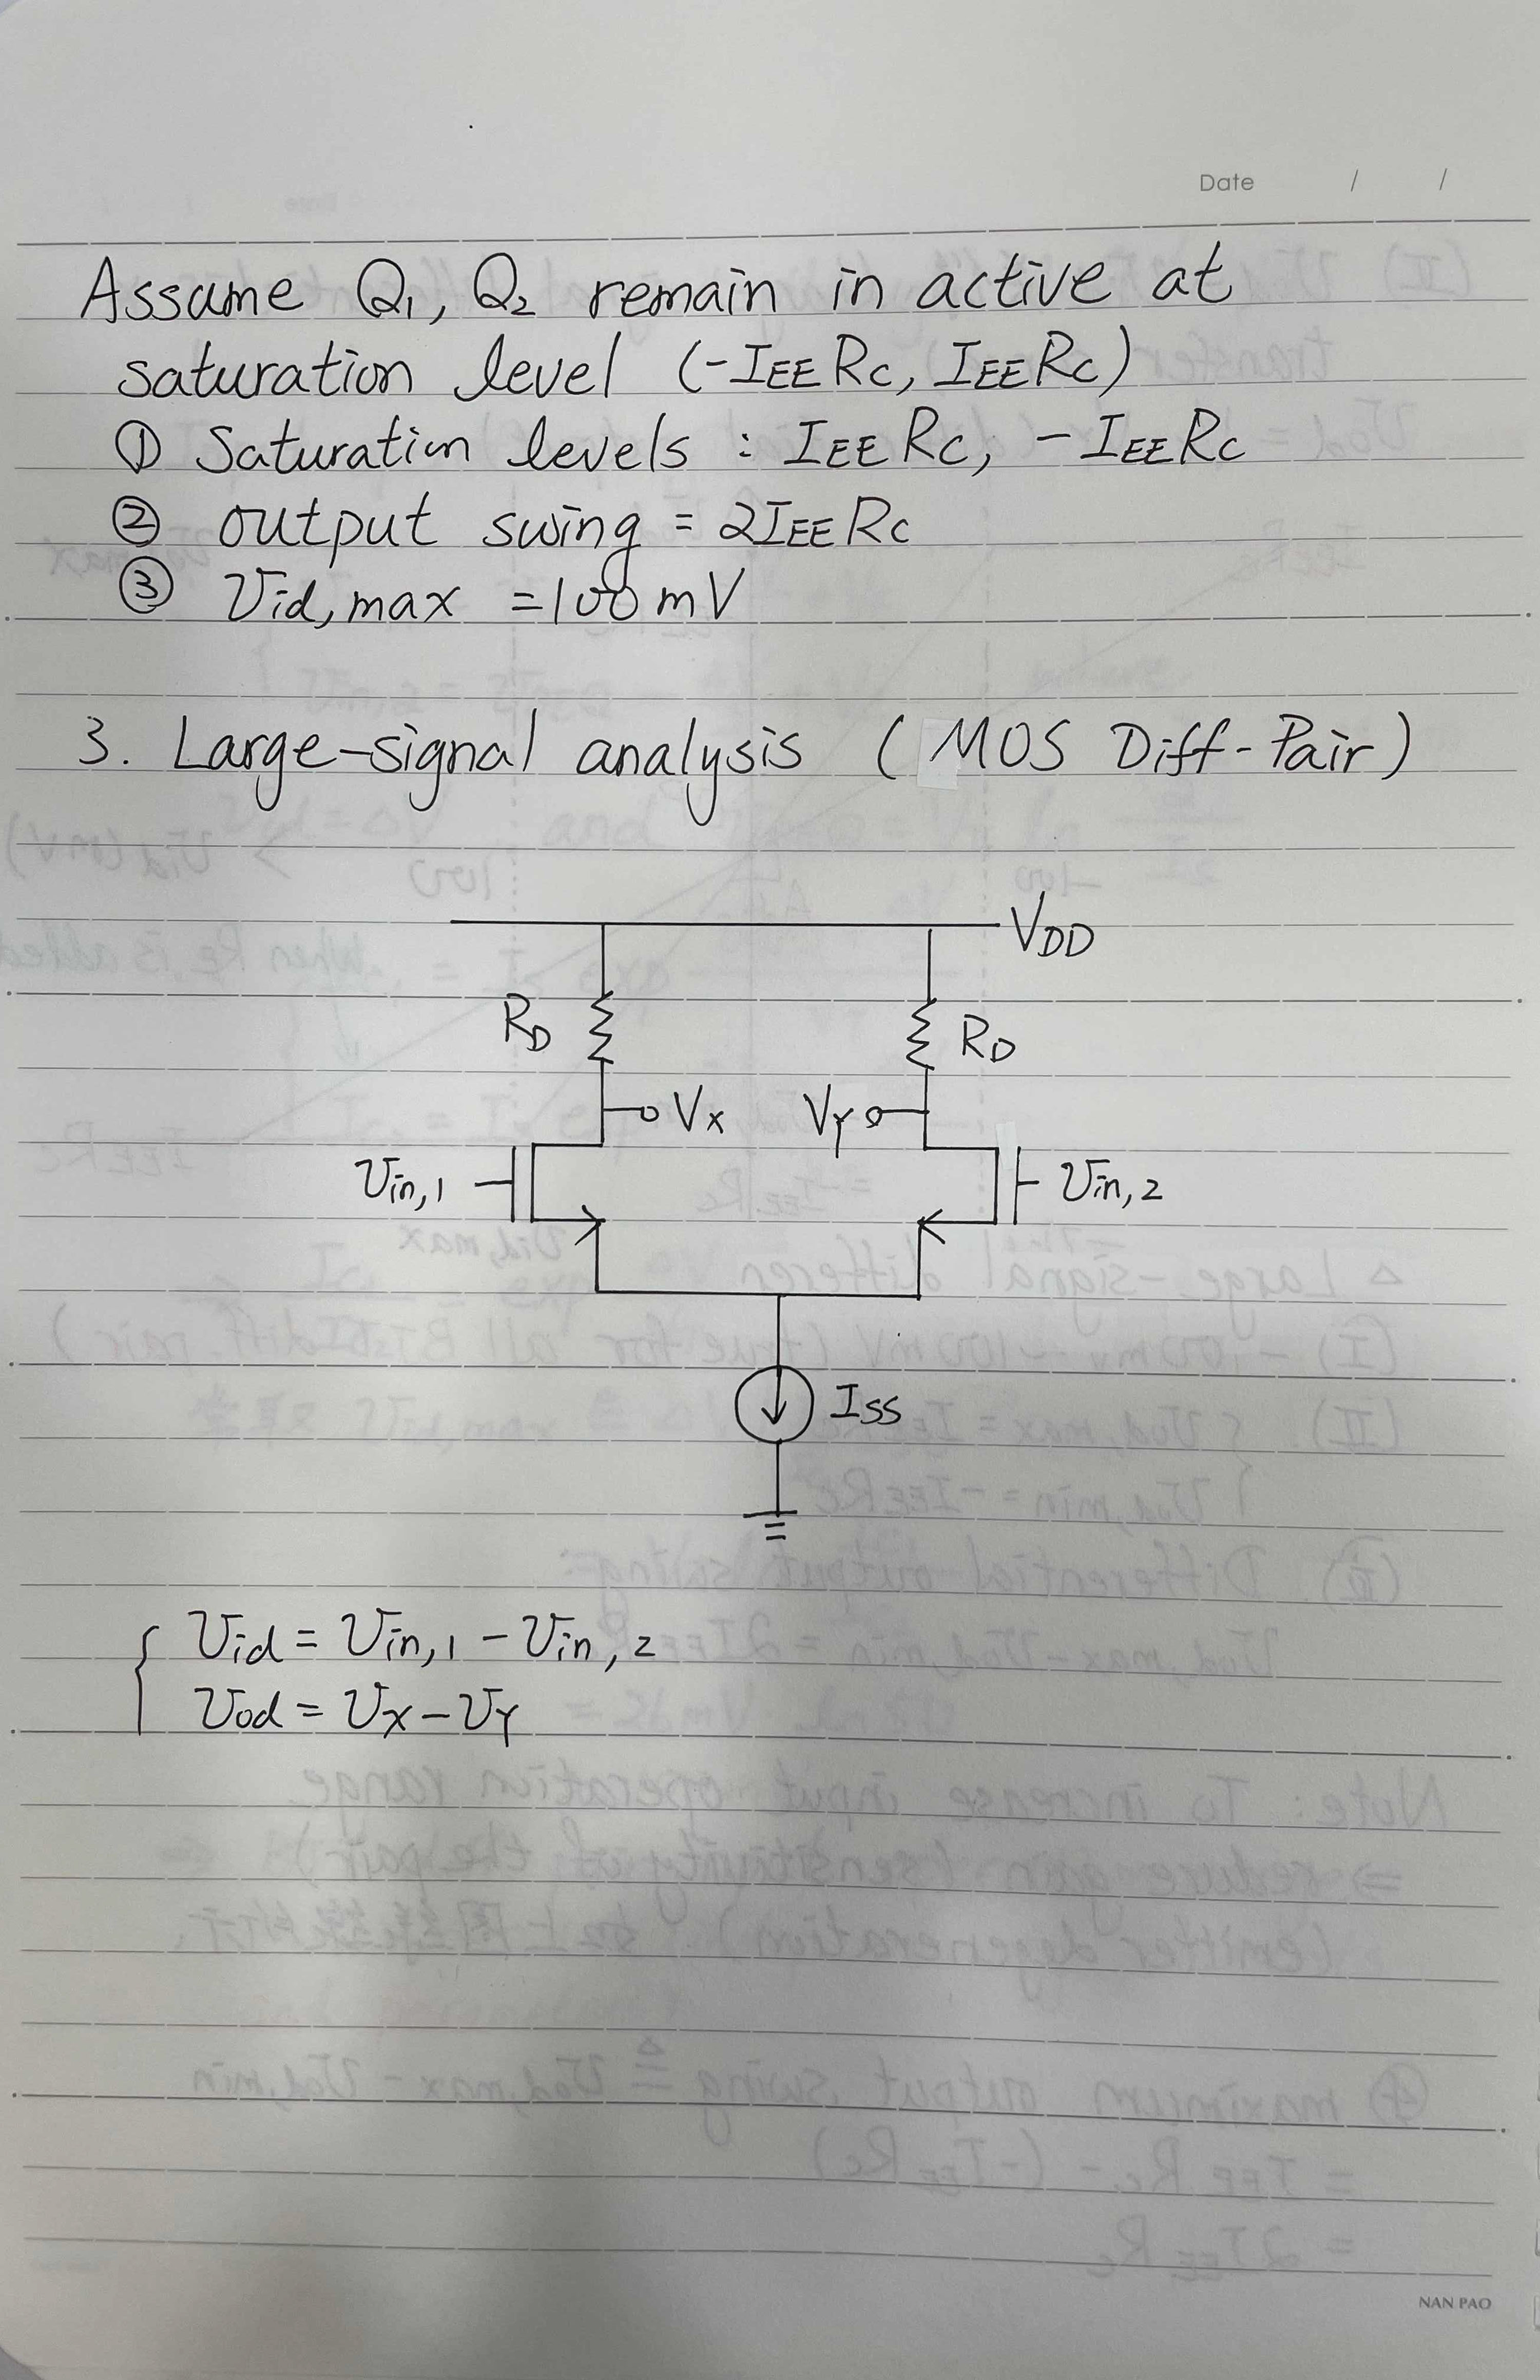 Date / /
Assume Q₁, Q₂ remain in active at
saturation level (-IEE RC, IEE RC)
① Saturation levels : IEE RC, -IEE RC
② output swing = 2IEE RC
③ Vid,max = 100 mV
3. Large-signal analysis ( MOS Diff-Pair )
VDD
RD RD
VX VY
Vin,1 Vin,2
ISS
Vid = Vin,1 - Vin,2
Vod = VX - VY
NAN PAO